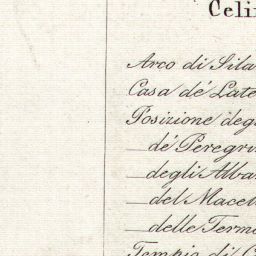 Celi
Arco di Sila
Casa de' Late
Posizione deg
de' Peregri
degli Alba
del Macel
delle Terme
Tempio di C